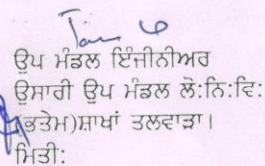 ਉਪ ਮੰਡਲ ਇੰਜੀਨੀਅਰ
ਉਸਾਰੀ ਉਪ ਮੰਡਲ ਲੋ:ਨਿ:ਵਿ:
(ਭਤੇਮ)ਸ਼ਾਖਾਂ ਤਲਵਾੜਾ।
ਮਿਤੀ: